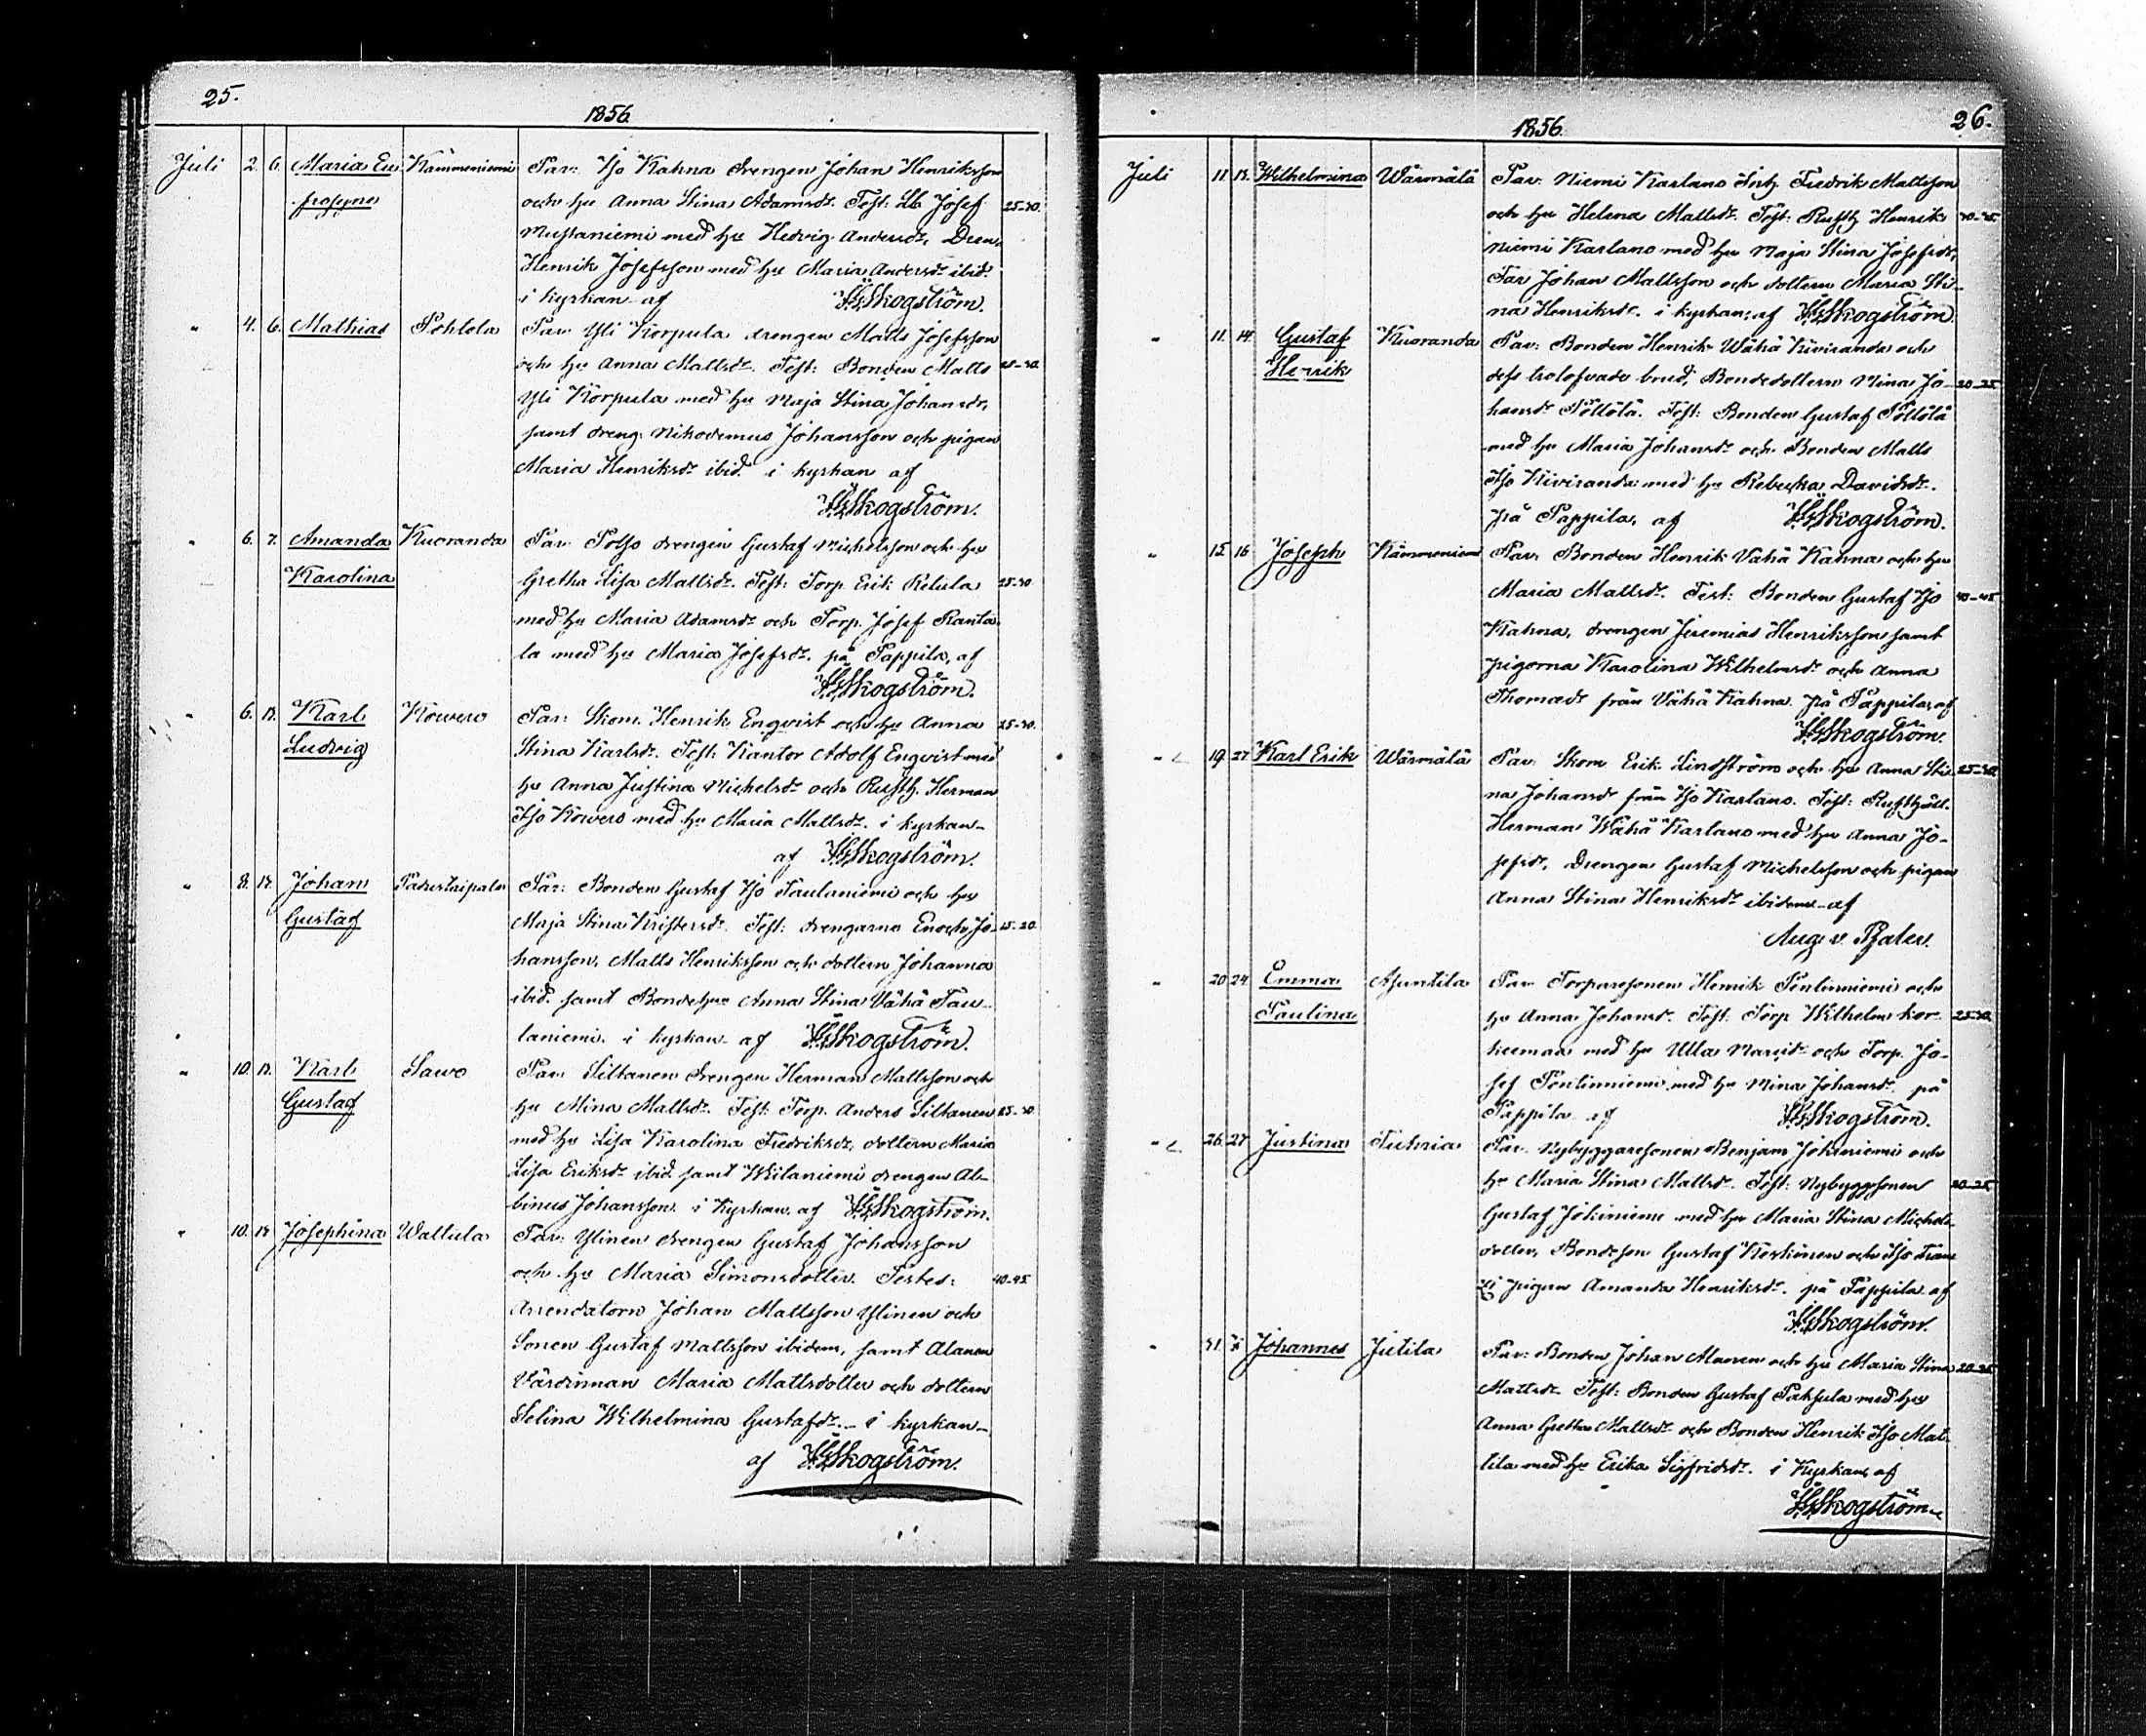 25.
1856.
Juli 2. 6. Maria Eu Kämmeniemi Par: Iso Kahna drengen Johan Henriksson
frosyne och hu Anna Stina Adamsdr. Test: Josef 25-30.
Mustaniemi med hu Hedvig Andersdr,
Henrik Josefsson med hu Maria Andersdr ibid.
i kyrkan af HGSkogström.
" 4. 6. Mathias Pohtola Par: Yli Korpula drengen Matts Josefsson
och hu Anna Mattsdr. Test: Bonden Matts 25-30.
Yli Korpula med hu Maja Stina Johansdr,
samt dreng. Nikodemus Johansson och pigan
Maria Henriksdr ibid. i kyrkan af
HGSkogström.
" 6. 7. Amanda Kuoranda Par: Potso drengen Gustaf Michelsson och hu
Karolina Gretha Lisa Mattsdr. Test: Torp. Erik Retula 25-30
med hu Maria Adamsdr och Torp. Josef Ranta
la med hu Maria Josefsdr. på Pappila, af
HGSkogström.
" 6. 13. Karl Kowero Par: Skom. Henrik Enqvist och hu Anna 25-30.
Ludvig Stina Karlsdr. Test: Kantor Adolf Enqvist med
hu Anna Justina Michelsdr och Rusth. Herman
Iso Kowero med hu Maria Mattsdr. i kyrkan
af HGSkogström.
" 8. 13. Johan Padustaipale Par: Bonden Gustaf Iso Paulaniemi och hu
Gustaf Maja Stina Kristersdr. Test: drengarne Enoch Jo- 15-20.
hansson, Matts Henriksson och dottern Johanna
ibid. samt Bondehu Anna Stina Vähä Pau-
laniemi. i kyrkan af HGSkogström.
" 10. 13. Karl Sawo Par: Siltanen drengen Herman Mattsson och
Gustaf hu Mina Mattsdr. Test: Torp. Anders Siltanen 25-30
med hu Lisa Karolina Fredriksdr, dottern Maria
Lisa Eriksdr ibid. samt Wiilaniemi drengen Al-
binus Johansson. i Kyrkan af HGSkogström.
" 10. 13 Josephina Wattula Par: Ylinen drengen Gustaf Johansson
och hu Maria Simonsdotter. Testes: 40-45
Arrendatorn Johan Mattsson Ylinen och
Sonen Gustaf Mattsson ibidem, samt Alanen
Värdinnan Maria Mattsdotter och dottern
Selina Wilhelmina Gustafsdr. - i kyrkan -
af HGSkogström.
26.
1856.
Juli 11. 13. Wilhelmina Wärmälä Par: Niemi Karlano Inh. Fredrik Mattsson
och hu Helena Mattsdr. Test: Rusth. Henrik 40-45
Niemi Karlano med hu Maja Stina Josefsdr,
Far Johan Mattsson och dottern Maria Sti-
na Henriksdr. i kyrkan, af HGSkogström.
" 11. 14. Gustaf Kuoranda Par: Bonden Henrik Wähä Kiviranda och
Henrik dess trolofvade brud, Bondedottern Mina Jo- 20-25
hansdr Pöllölä. Test: Bonden Gustaf Pöllölä
med hu Maria Johansdr och Bonden Matts
Iso Kiviranda med hu Rebecka Davidsdr.
på Pappila, af HGSkogström.
" 15. 16 Joseph Kämmeniemi Par: Bonden Henrik Vähä Kahna och hu
Maria Mattsdr. Test: Bonden Gustaf Iso 40-45
Kahna, drengen Jeremias Henriksson samt
pigorna Karolina Wilhelmsdr och Anna
Thomasdr från Vähä Kahna. på Pappila, af
HGSkogström.
" 19. 27 Karl Erik Wärmälä Par: Skom. Erik Lindström och hu Anna Sti- 25-30.
na Johansdr från Iso Karlano. Test: Rusthåll.
Herman Wähä Karlano med hu Anna Jo-
sefsdr, Drengen Gustaf Michelsson och pigan
Anna Stina Henriksdr ibidem - af
Aug. v. Pfaler.
" 20. 24. Emma Asuntila Par: Torparesonen Henrik Pentinniemi och
Paulina hu Anna Johansdr. Test: Torp. Wilhelm Kor- 25-30.
keemaa med hu Ulla och Torp. Jo-
sef Pentinniemi med hu Mina Johansdr. på
Pappila af HGSkogström.
" 26. 27 Justina Tuhria Par: Nybyggaresonen Benjam. Jokiniemi och
hu Maria Stina Mattsdr. Test: Nybyggsonen 20-25
Gustaf Jokiniemi med hu Maria Stina Michels-
dotter, Bondeson Gustaf Keskinen och Iso
pigan Amanda Henriksdr. på Pappila af
HGSkogström.
" 31. Johannes Jutila Par: Bonden Johan och hu Maria Stina 20-25
Mattsdr. Test: Bonden Gustaf Paksula med hu
Anna Gretha Mattsdr och Bonden Henrik Iso Mat-
tila med hu Erika Sigfridsdr. i Kyrkan, af
HGSkogström.